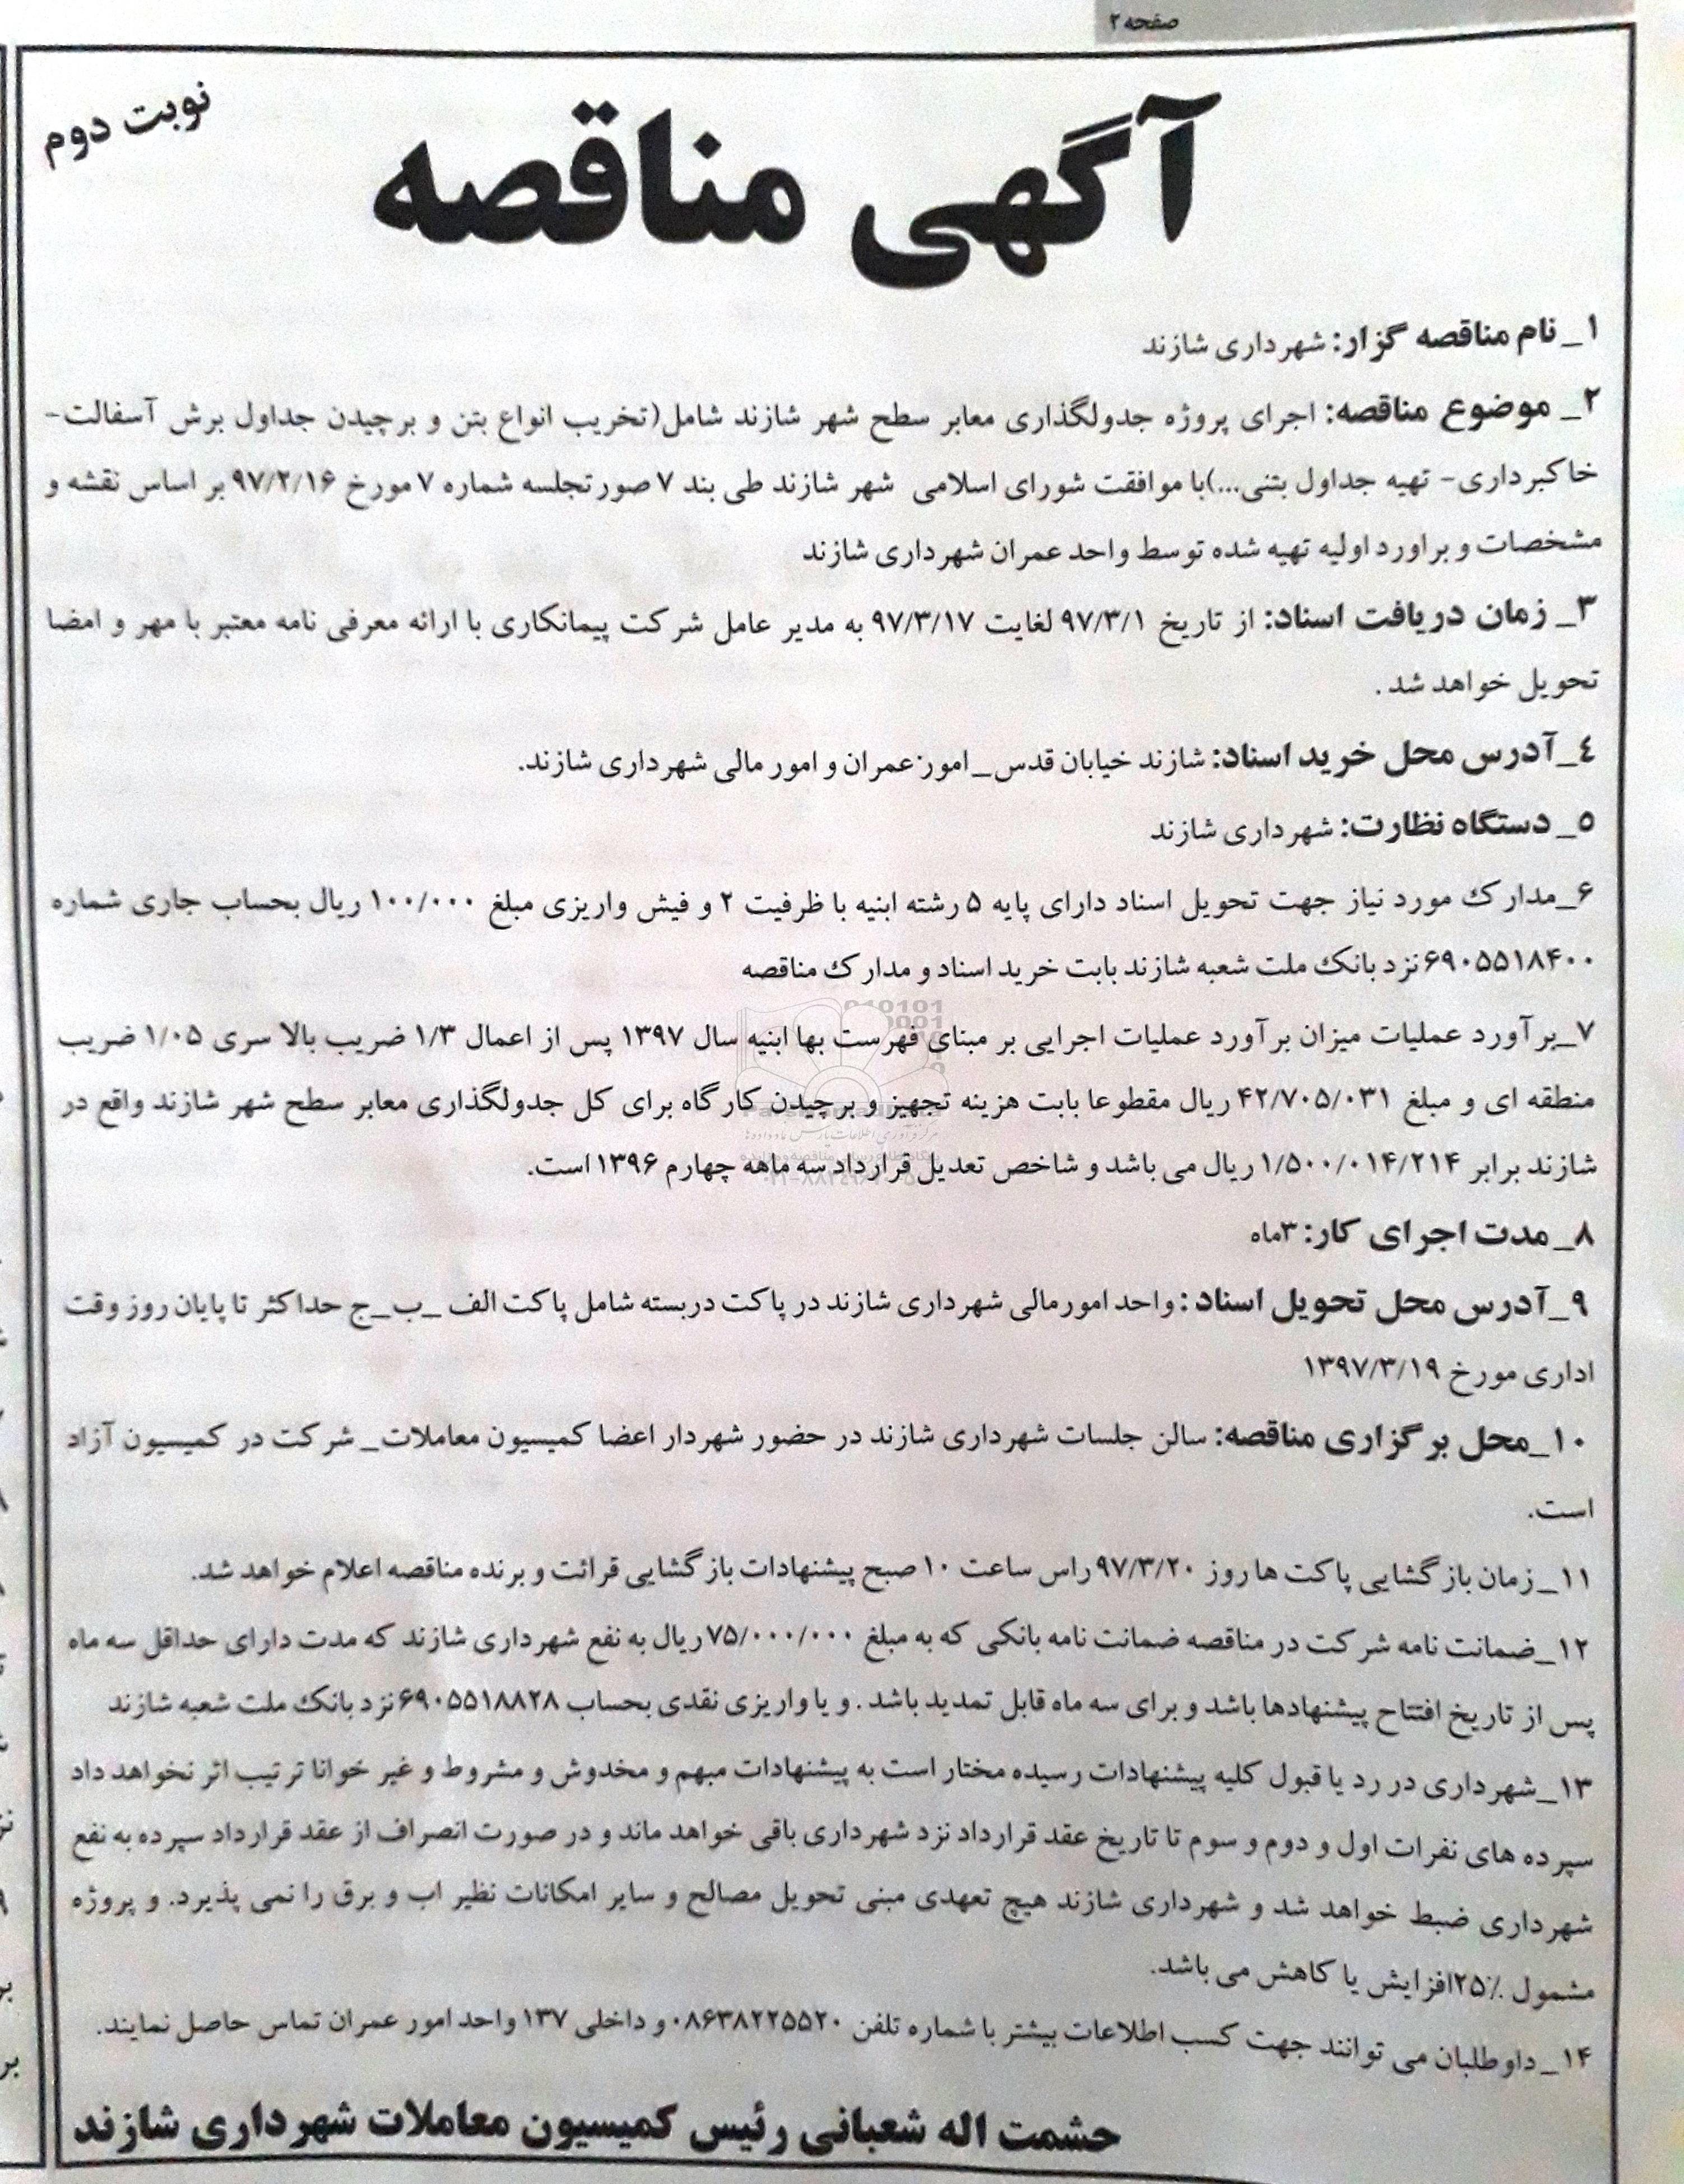 صفحه ۲
نوبت دوم
آگهی مناقصه
۱_ نام مناقصه گزار: شهرداری شازند
۲_ موضوع مناقصه: اجرای پروژه جدولگذاری معابر سطح شهر شازند شامل(تخریب انواع بتن و برچیدن جداول برش آسفالت-
خاکبرداری- تهیه جداول بتنی...)با موافقت شورای اسلامی شهر شازند طی بند ۷ صورتجلسه شماره ۷ مورخ ۹۷/۲/۱۶ بر اساس نقشه و
مشخصات و براورد اولیه تهیه شده توسط واحد عمران شهرداری شازند
۳_ زمان دریافت اسناد: از تاریخ ۹۷/۳/۱ لغایت ۹۷/۳/۱۷ به مدیر عامل شرکت پیمانکاری با ارائه معرفی نامه معتبر با مهر و امضا
تحویل خواهد شد.
٤_آدرس محل خرید اسناد: شازند خیابان قدس_امور عمران و امور مالی شهرداری شازند.
۵_ دستگاه نظارت: شهرداری شازند
۶_مدارک مورد نیاز جهت تحویل اسناد دارای پایه ۵ رشته ابنیه با ظرفیت ۲ و فیش واریزی مبلغ ۱۰۰/۰۰۰ ریال بحساب جاری شماره
۶۹۰۵۵۱۸۴۰۰ نزد بانک ملت شعبه شازند بابت خرید اسناد و مدارک مناقصه
۷_برآورد عملیات میزان برآورد عملیات اجرایی بر مبنای فهرست بها ابنیه سال ۱۳۹۷ پس از اعمال ۱/۳ ضریب بالا سری ۱/۰۵ ضریب
منطقه ای و مبلغ ۴۲/۷۰۵/۰۳۱ ریال مقطوعا بابت هزینه تجهیز و برچیدن کارگاه برای کل جدولگذاری معابر سطح شهر شازند واقع در
شازند برابر ۱/۵۰۰/۰۱۴/۲۱۴ ریال می باشد و شاخص تعدیل قرارداد سه ماهه چهارم ۱۳۹۶ است.
۸_ مدت اجرای کار: ۳ماه
۹_آدرس محل تحویل اسناد: واحد امورمالی شهرداری شازند در پاکت دربسته شامل پاکت الف _ب_ج حداکثر تا پایان روز وقت
اداری مورخ ۱۳۹۷/۳/۱۹
۱۰_محل برگزاری مناقصه: سالن جلسات شهرداری شازند در حضور شهردار اعضا کمیسیون معاملات_ شرکت در کمیسیون آزاد
است.
۱۱_ زمان بازگشایی پاکت ها روز ۹۷/۳/۲۰ راس ساعت ۱۰ صبح پیشنهادات بازگشایی قرائت و برنده مناقصه اعلام خواهد شد.
۱۲_ضمانت نامه شرکت در مناقصه ضمانت نامه بانکی که به مبلغ ۷۵/۰۰۰/۰۰۰ ریال به نفع شهرداری شازند که مدت دارای حداقل سه ماه
پس از تاریخ افتتاح پیشنهادها باشد و برای سه ماه قابل تمدید باشد . و یا واریزی نقدی بحساب ۶۹۰۵۵۱۸۸۲۸ نزد بانک ملت شعبه شازند
۱۳_شهرداری در رد یا قبول کلیه پیشنهادات رسیده مختار است به پیشنهادات مبهم و مخدوش و مشروط و غیر خوانا ترتیب اثر نخواهد داد
سپرده های نفرات اول و دوم و سوم تا تاریخ عقد قرارداد نزد شهرداری باقی خواهد ماند و در صورت انصراف از عقد قرارداد سپرده به نفع
شهرداری ضبط خواهد شد و شهرداری شازند هیچ تعهدی مبنی تحویل مصالح و سایر امکانات نظیر اب و برق را نمی پذیرد. و پروژه
مشمول ۲۵٪افزایش یا کاهش می باشد.
۱۴_ داوطلبان می توانند جهت کسب اطلاعات بیشتر با شماره تلفن ۰۸۶۳۸۲۲۵۵۲۰ و داخلی ۱۳۷ واحد امور عمران تماس حاصل نمایند.
حشمت اله شعبانی رئیس کمیسیون معاملات شهرداری شازند